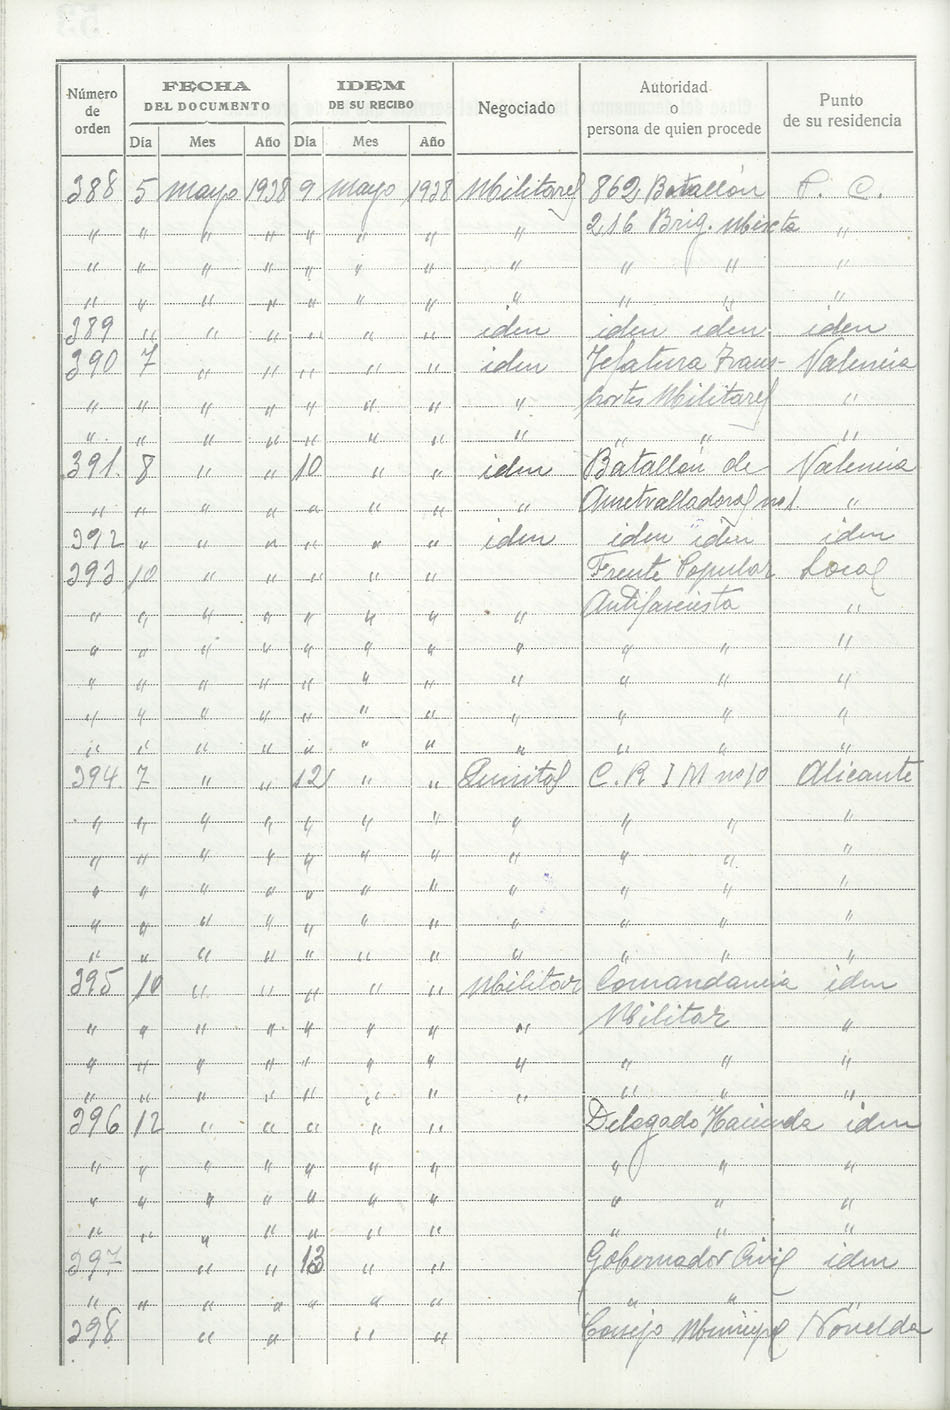 Número de orden | FECHA DEL DOCUMENTO | IDEM DE SU RECIBO | Negociado | Autoridad o persona de quien procede | Punto de su residencia
Día | Mes | Año | Día | Mes | Año
388 5 Mayo 1938 9 Mayo 1938 Militares 862 Batallón P. C.
" " " " " " " " 216 Brig. Mixta "
" " " " " " " " " " "
" " " " " " " " " " "
389 " " " " " " iden iden iden iden
390 7 " " " " " iden Jefatura Trans- Valencia
" " " " " " " " portes Militares "
" " " " " " " " " " "
391. 8 " " 10 " " iden Batallón de Valencia
" " " " " " " " Ametralladoras nº 1. "
392 " " " " " " iden iden iden iden
393 10 " " " " " Frente Popular Local
" " " " " " " " Antifascista "
" " " " " " " " " " "
" " " " " " " " " " "
" " " " " " " " " " "
" " " " " " " " " " "
394. 7 " " 12 " " Quintas C. R. I M nº 10 Alicante
" " " " " " " " " " "
" " " " " " " " " " "
" " " " " " " " " " "
" " " " " " " " " " "
" " " " " " " " " " "
395 10 " " " " " Militar Comandancia iden
" " " " " " " " Militar "
" " " " " " " " " " "
" " " " " " " " " " "
396 12 " " " " " Delegado Hacienda iden
" " " " " " " " " "
" " " " " " " " " "
" " " " " " " " " "
397 " " 13 " " Gobernador Civil iden
" " " " " " " " " "
398 " " " " Consejo Municipal Novelda